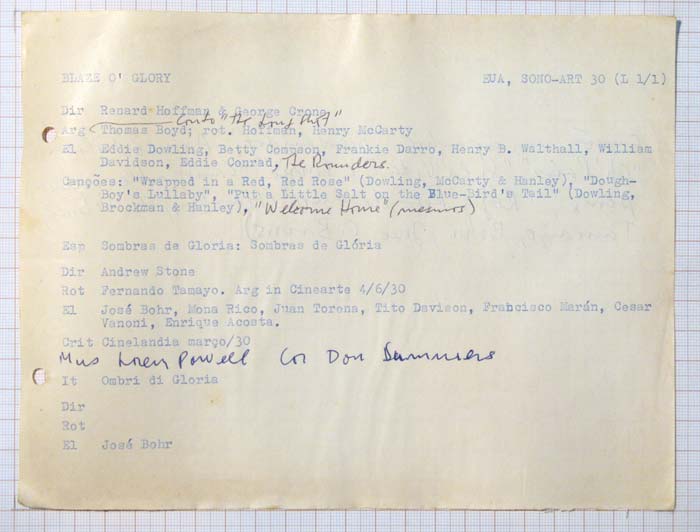 BLAZE O' GLORY EUA, SONO-ART 30 (L 1/1)
Dir Renard Hoffman & George Crone
conto "the Long Shot"
Arg Thomas Boyd; rot. Hoffman, Henry McCarty
El Eddie Dowling, Betty Compson, Frankie Darro, Henry B. Walthall, William
Davidson, Eddie Conrad, The Rounders.
Canções: "Wrapped in a Red, Red Rose" (Dowling, McCarty & Hanley), "Dough-
Boy's Lullaby", "Put a Little Salt on the Blue-Bird's Tail" (Dowling,
Brockman & Hanley), "Welcome Home" (mesmos)
Esp Sombras de Gloria: Sombras de Glória
Dir Andrew Stone
Rot Fernando Tamayo. Arg in Cinearte 4/6/30
El José Bohr, Mona Rico, Juan Torena, Tito Davison, Frabcisco Marán, Cesar
Vanoni, Enrique Acosta.
Crit Cinelandia março/30
Mus Loren Powell Cor Don Summers
It Ombri di Gloria
Dir
Rot
El José Bohr